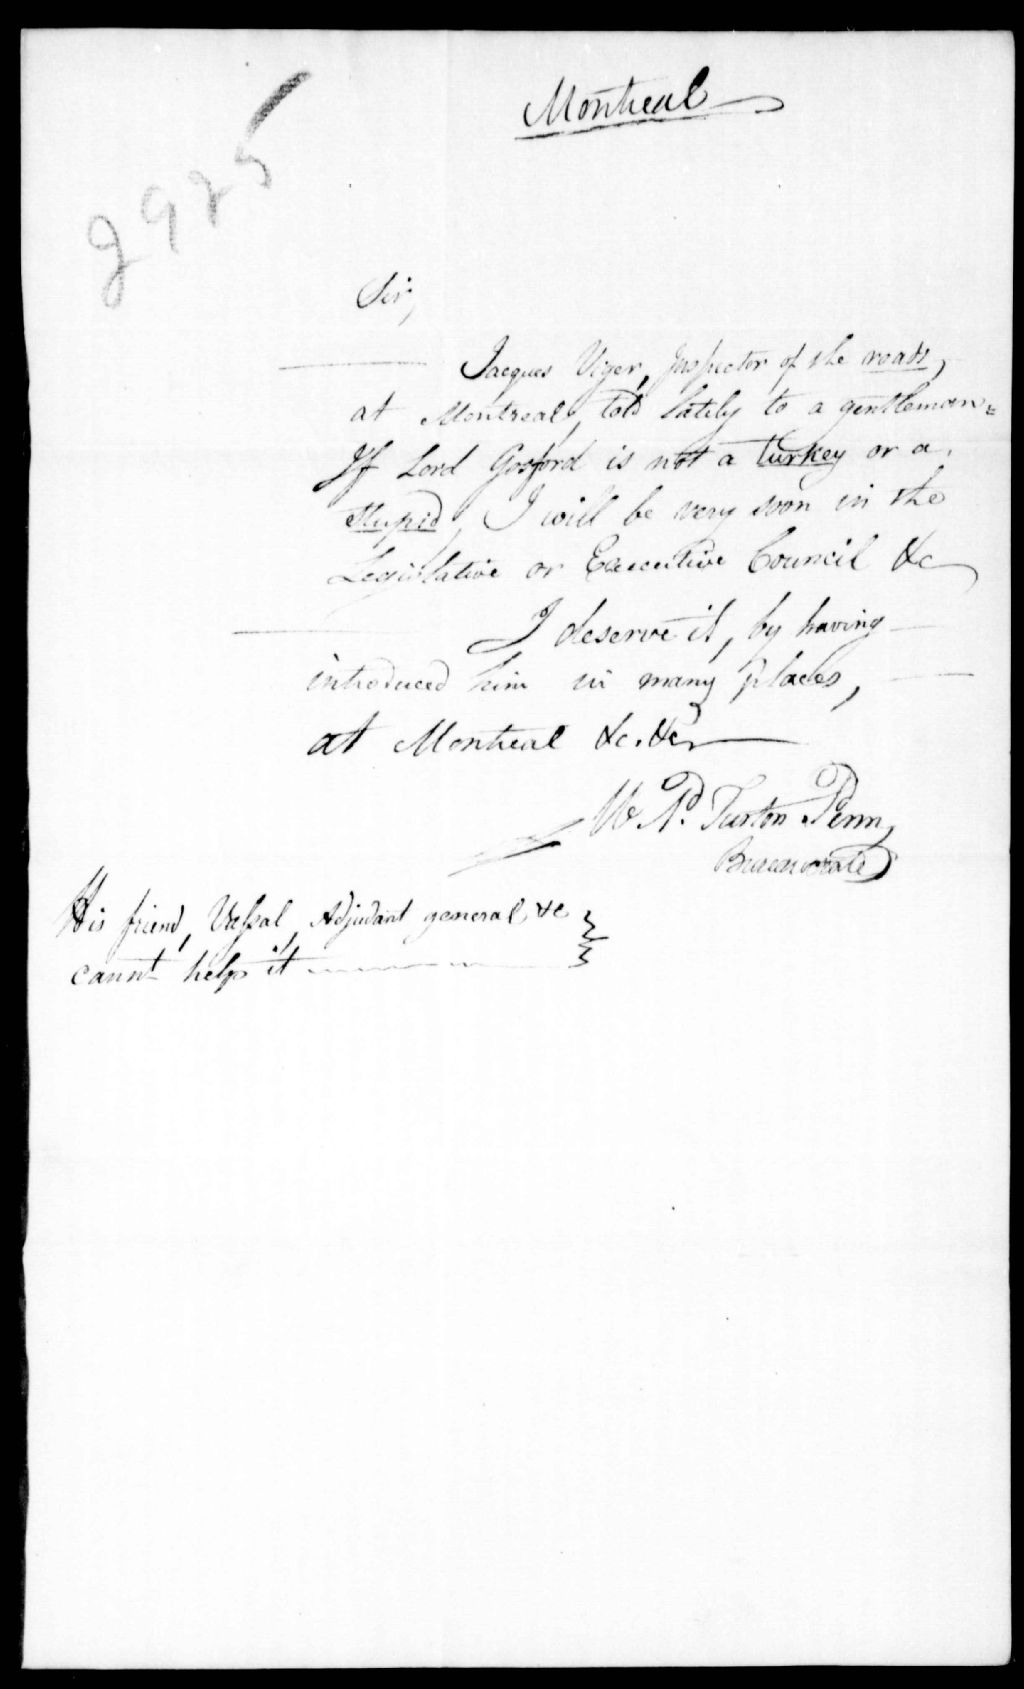 Montreal
2925
Sir,
Jacques Viger, Inspector of the roads,
at Montreal, told lately to a gentleman=
If Lord Gosford is not a turkey or a
stupid, I will be very soon in the
Legislative or Executive Council &c
I deserve it, by having
introduced him in many places,
at Montreal &c. &c
Turton Penn,
Beaucrate
His friend, Vassal, Adjudant general &c
cannt help it